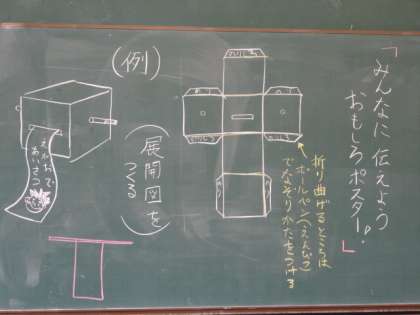 「みんなに伝えよう
おもしろポスター。」
(例)
折り曲げるところは
ボールペン(えんぴつ)
でなぞりかたをつける
(展開図を
つくる)
えがおで
あいさつ